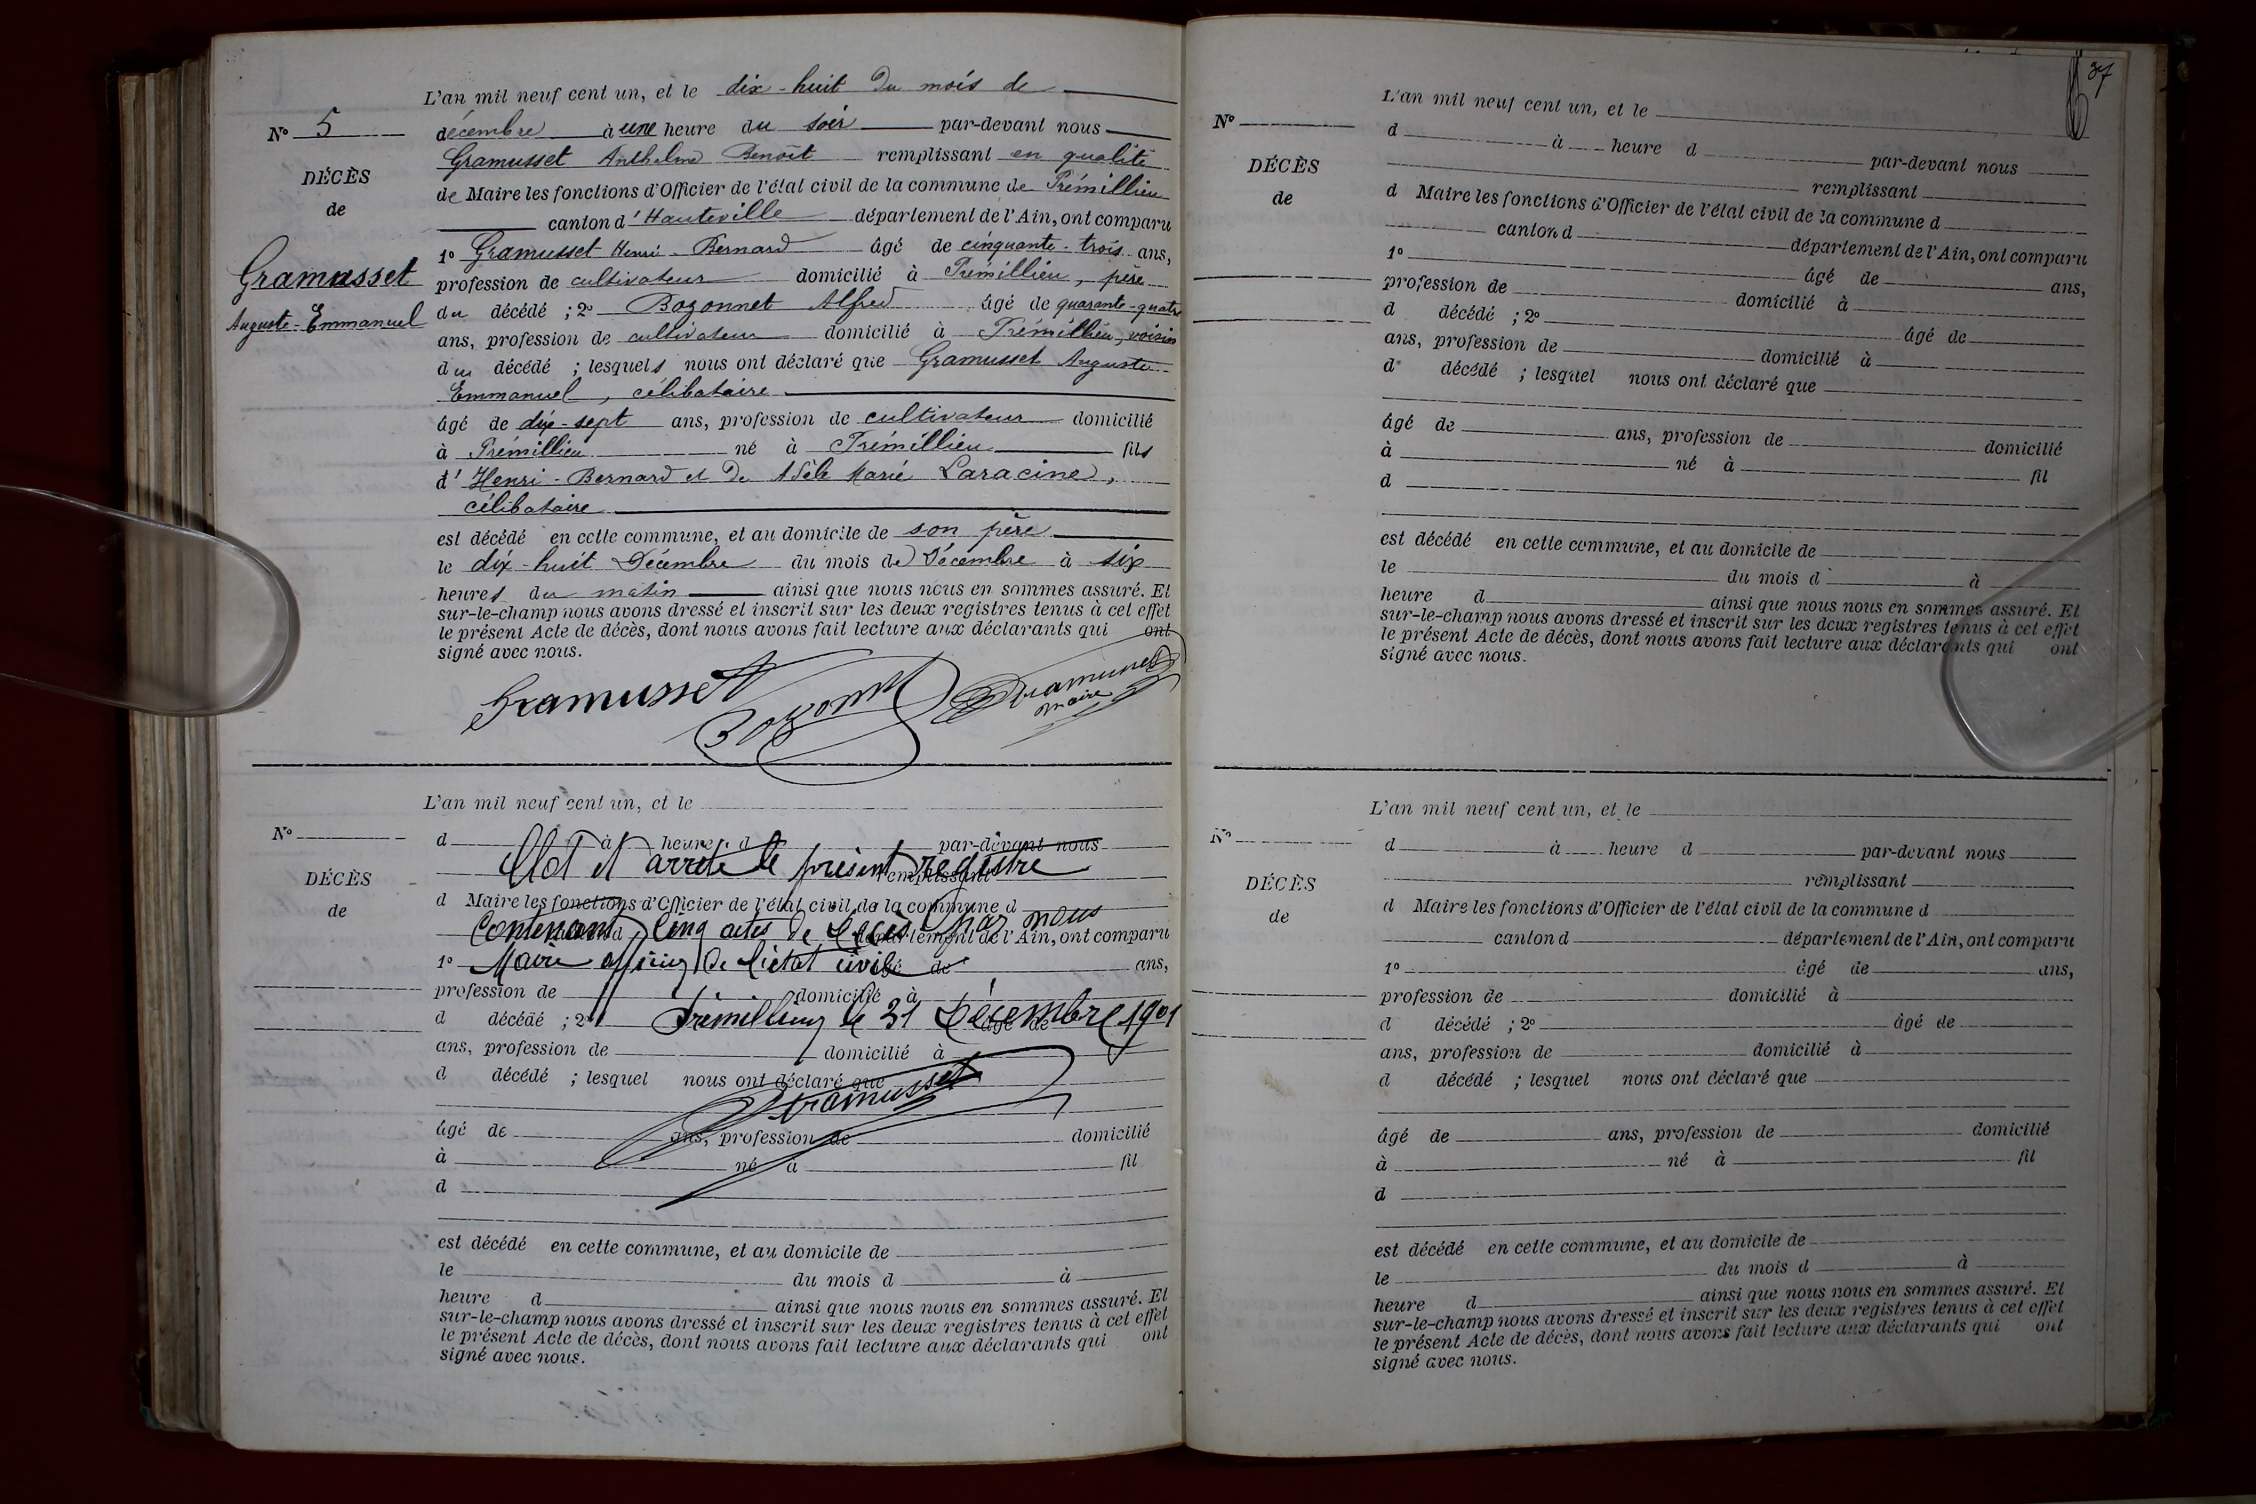 L'an mil neuf cent un, et le dix-huit du mois de
N° 5
décembre à une heure du soir par-devant nous
Gramusset Anthelme Benoît remplissant en qualité
DÉCÈS
de Maire les fonctions d'Officier de l'état civil de la commune de Prémillieu
de
canton d'Hauteville département de l'Ain, ont comparu
1° Gramusset Henri-Bernard âgé de cinquante-trois ans,
Gramusset
profession de cultivateur domicilié à Prémillieu, père
Auguste-Emmanuel
du décédé ; 2° Bozonnet Alfred âgé de quarante-quatre
ans, profession de cultivateur domicilié à Prémillieu, voisin
du décédé ; lesquels nous ont déclaré que Gramusset Auguste
Emmanuel, célibataire
âgé de dix-sept ans, profession de cultivateur domicilié
à Prémillieu né à Prémillieu fils
d' Henri-Bernard et de Adèle Marie Laracine,
célibataire
est décédé en cette commune, et au domicile de son père
le dix-huit Décembre du mois de Décembre à six
heures du matin ainsi que nous nous en sommes assuré. Et
sur-le-champ nous avons dressé et inscrit sur les deux registres tenus à cet effet
le présent Acte de décès, dont nous avons fait lecture aux déclarants qui ont
signé avec nous.
Gramusset Bozonnet Gramusset
maire
L'an mil neuf cent un, et le
N°
d à heure d par-devant nous
Clos et arrêté le présent registre
remplissant
DÉCÈS
d Maire les fonctions d'Officier de l'état civil de la commune d
de
Contenant Cinq actes de décès par nous
canton d département de l'Ain, ont comparu
Maire officier de l'état civil
1° âgé de ans,
profession de domicilié à
Prémillieu le 31 Décembre 1901
d décédé ; 2° âgé de
ans, profession de domicilié à
d décédé ; lesquel nous ont déclaré que
Gramusset
âgé de ans, profession de domicilié
à né à fil
d
est décédé en cette commune, et au domicile de
le du mois d à
heure d ainsi que nous nous en sommes assuré. Et
sur-le-champ nous avons dressé et inscrit sur les deux registres tenus à cet effet
le présent Acte de décès, dont nous avons fait lecture aux déclarants qui ont
signé avec nous.
37
L'an mil neuf cent un, et le
N°
d à heure d par-devant nous
remplissant
DÉCÈS
d Maire les fonctions d'Officier de l'état civil de la commune d
de
canton d département de l'Ain, ont comparu
1° âgé de ans,
profession de domicilié à
d décédé ; 2° âgé de
ans, profession de domicilié à
d décédé ; lesquel nous ont déclaré que
âgé de ans, profession de domicilié
à né à fil
d
est décédé en cette commune, et au domicile de
le du mois d à
heure d ainsi que nous nous en sommes assuré. Et
sur-le-champ nous avons dressé et inscrit sur les deux registres tenus à cet effet
le présent Acte de décès, dont nous avons fait lecture aux déclarants qui ont
signé avec nous.
L'an mil neuf cent un, et le
N°
d à heure d par-devant nous
remplissant
DÉCÈS
d Maire les fonctions d'Officier de l'état civil de la commune d
de
canton d département de l'Ain, ont comparu
1° âgé de ans,
profession de domicilié à
d décédé ; 2° âgé de
ans, profession de domicilié à
d décédé ; lesquel nous ont déclaré que
âgé de ans, profession de domicilié
à né à fil
d
est décédé en cette commune, et au domicile de
le du mois d à
heure d ainsi que nous nous en sommes assuré. Et
sur-le-champ nous avons dressé et inscrit sur les deux registres tenus à cet effet
le présent Acte de décès, dont nous avons fait lecture aux déclarants qui ont
signé avec nous.